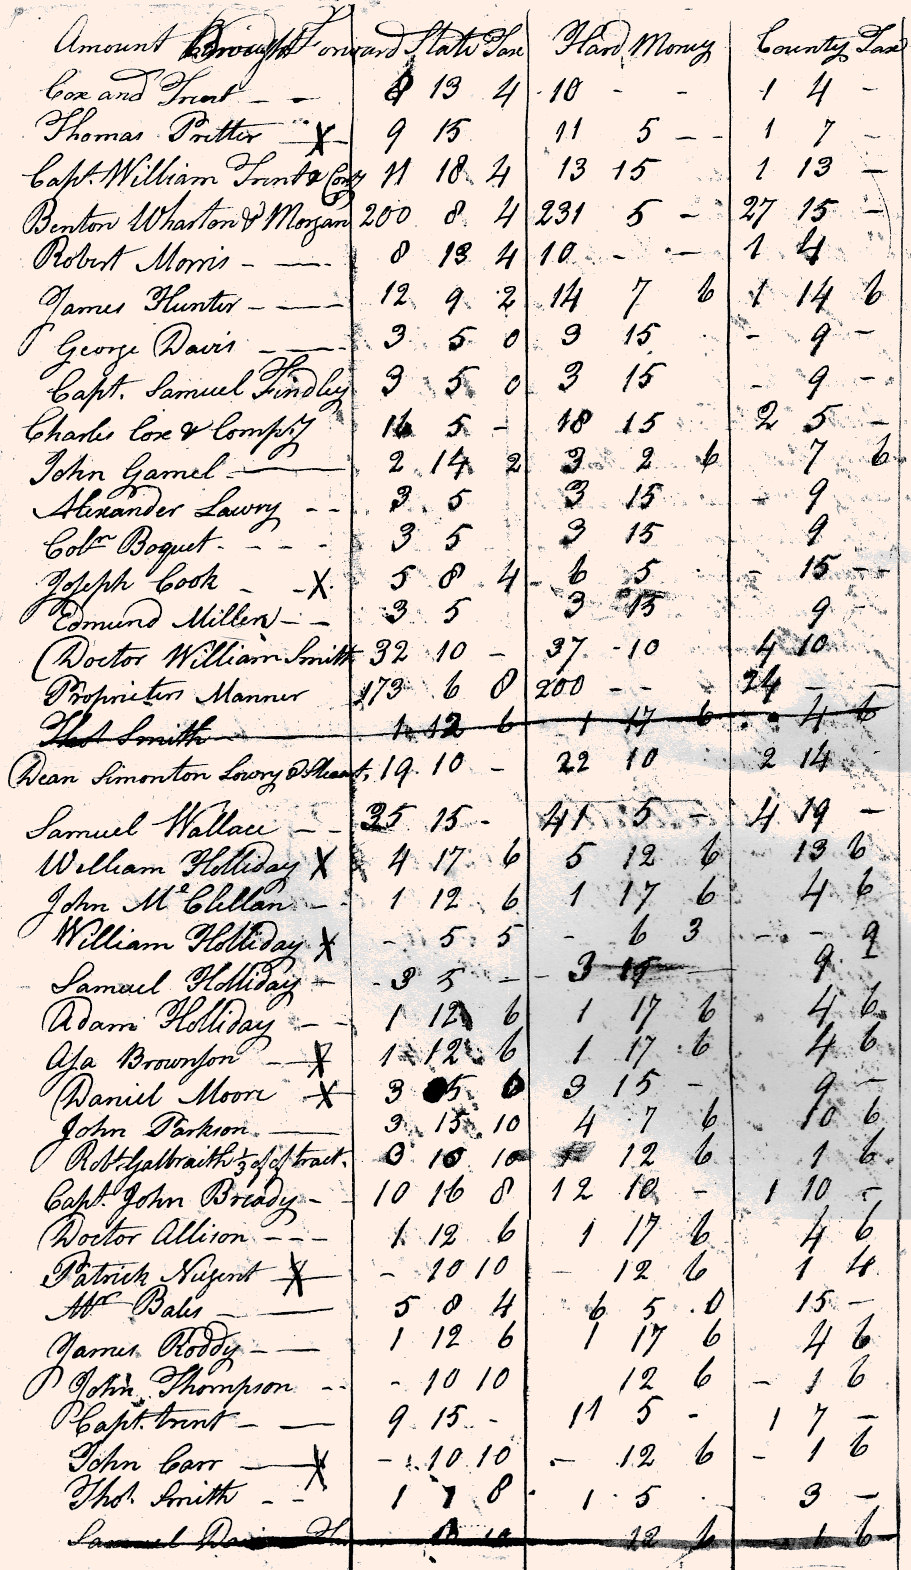 Amount Brought Forward State Tax Hard Money County Tax
Cox and Trent - - 8 13 4 10 - - 1 4 -
Thomas Pritter X 9 15 11 5 - - 1 7 -
Capt. William Trent & Comy 11 18 4 13 15 1 13 -
Benton Wharton & Morgan 200 8 4 231 5 - 27 15 -
Robert Morris - - 8 13 4 10 - - 1 4
James Hunter - - 12 9 2 14 7 6 1 14 6
George Davis - - 3 5 0 3 15 - 9 -
Capt. Samuel Findley 3 5 0 3 15 - 9 -
Charles Cox & Compy 16 5 - 18 15 2 5 -
John Gamel - 2 14 2 3 2 6 7 6
Alexander Lawry - - 3 5 3 15 - 9
Coln Boquet - - - - 3 5 3 15 9
Joseph Cook - - X 5 8 4 - 6 5 - 15 - -
Edmund Millen - - 3 5 3 15 9 -
Doctor William Smith 32 10 - 37 - 10 4 10
Proprieters Manner 173 6 8 200 - - 24 - -
Thos Smith 1 12 6 1 17 6 4 6
Dean Simonton Lowry & 19 10 - 22 10 2 14
Samuel Wallace - - 35 15 - 41 5 - 4 19 -
William Holliday X 4 17 6 5 12 6 13 6
John Mc Clellan - - 1 12 6 1 17 6 4 6
William Holliday X - 5 5 - 6 3 - - 9
Samuel Holliday - 3 5 - - 3 15 - 9 -
Adam Holliday - - 1 12 6 1 17 6 4 6
Asa Brownson - X 1 12 6 1 17 6 4 6
Daniel Moore X 3 5 0 3 15 - 9 -
John Parkson - 3 15 10 4 7 6 10 6
Robt. Galbraith 1/3 of of tract. 0 10 10 12 6 1 6
Capt. John Bready - - 10 16 8 12 10 - 1 10 -
Doctor Allison - - - 1 12 6 1 17 6 4 6
Patrick Nugent X - 10 10 - 12 6 1 4
Mr Bales - - 5 8 4 6 5 0 15 -
James Roddy - - 1 12 6 1 17 6 4 6
John Thompson - - - 10 10 12 6 - 1 6
Capt. trent - - 9 15 - 11 5 - 1 7 -
John Carr - X - 10 10 - 12 6 - 1 6
Thos. Smith - - 1 1 8 1 5 3 -
Samuel 10 10 12 6 1 6